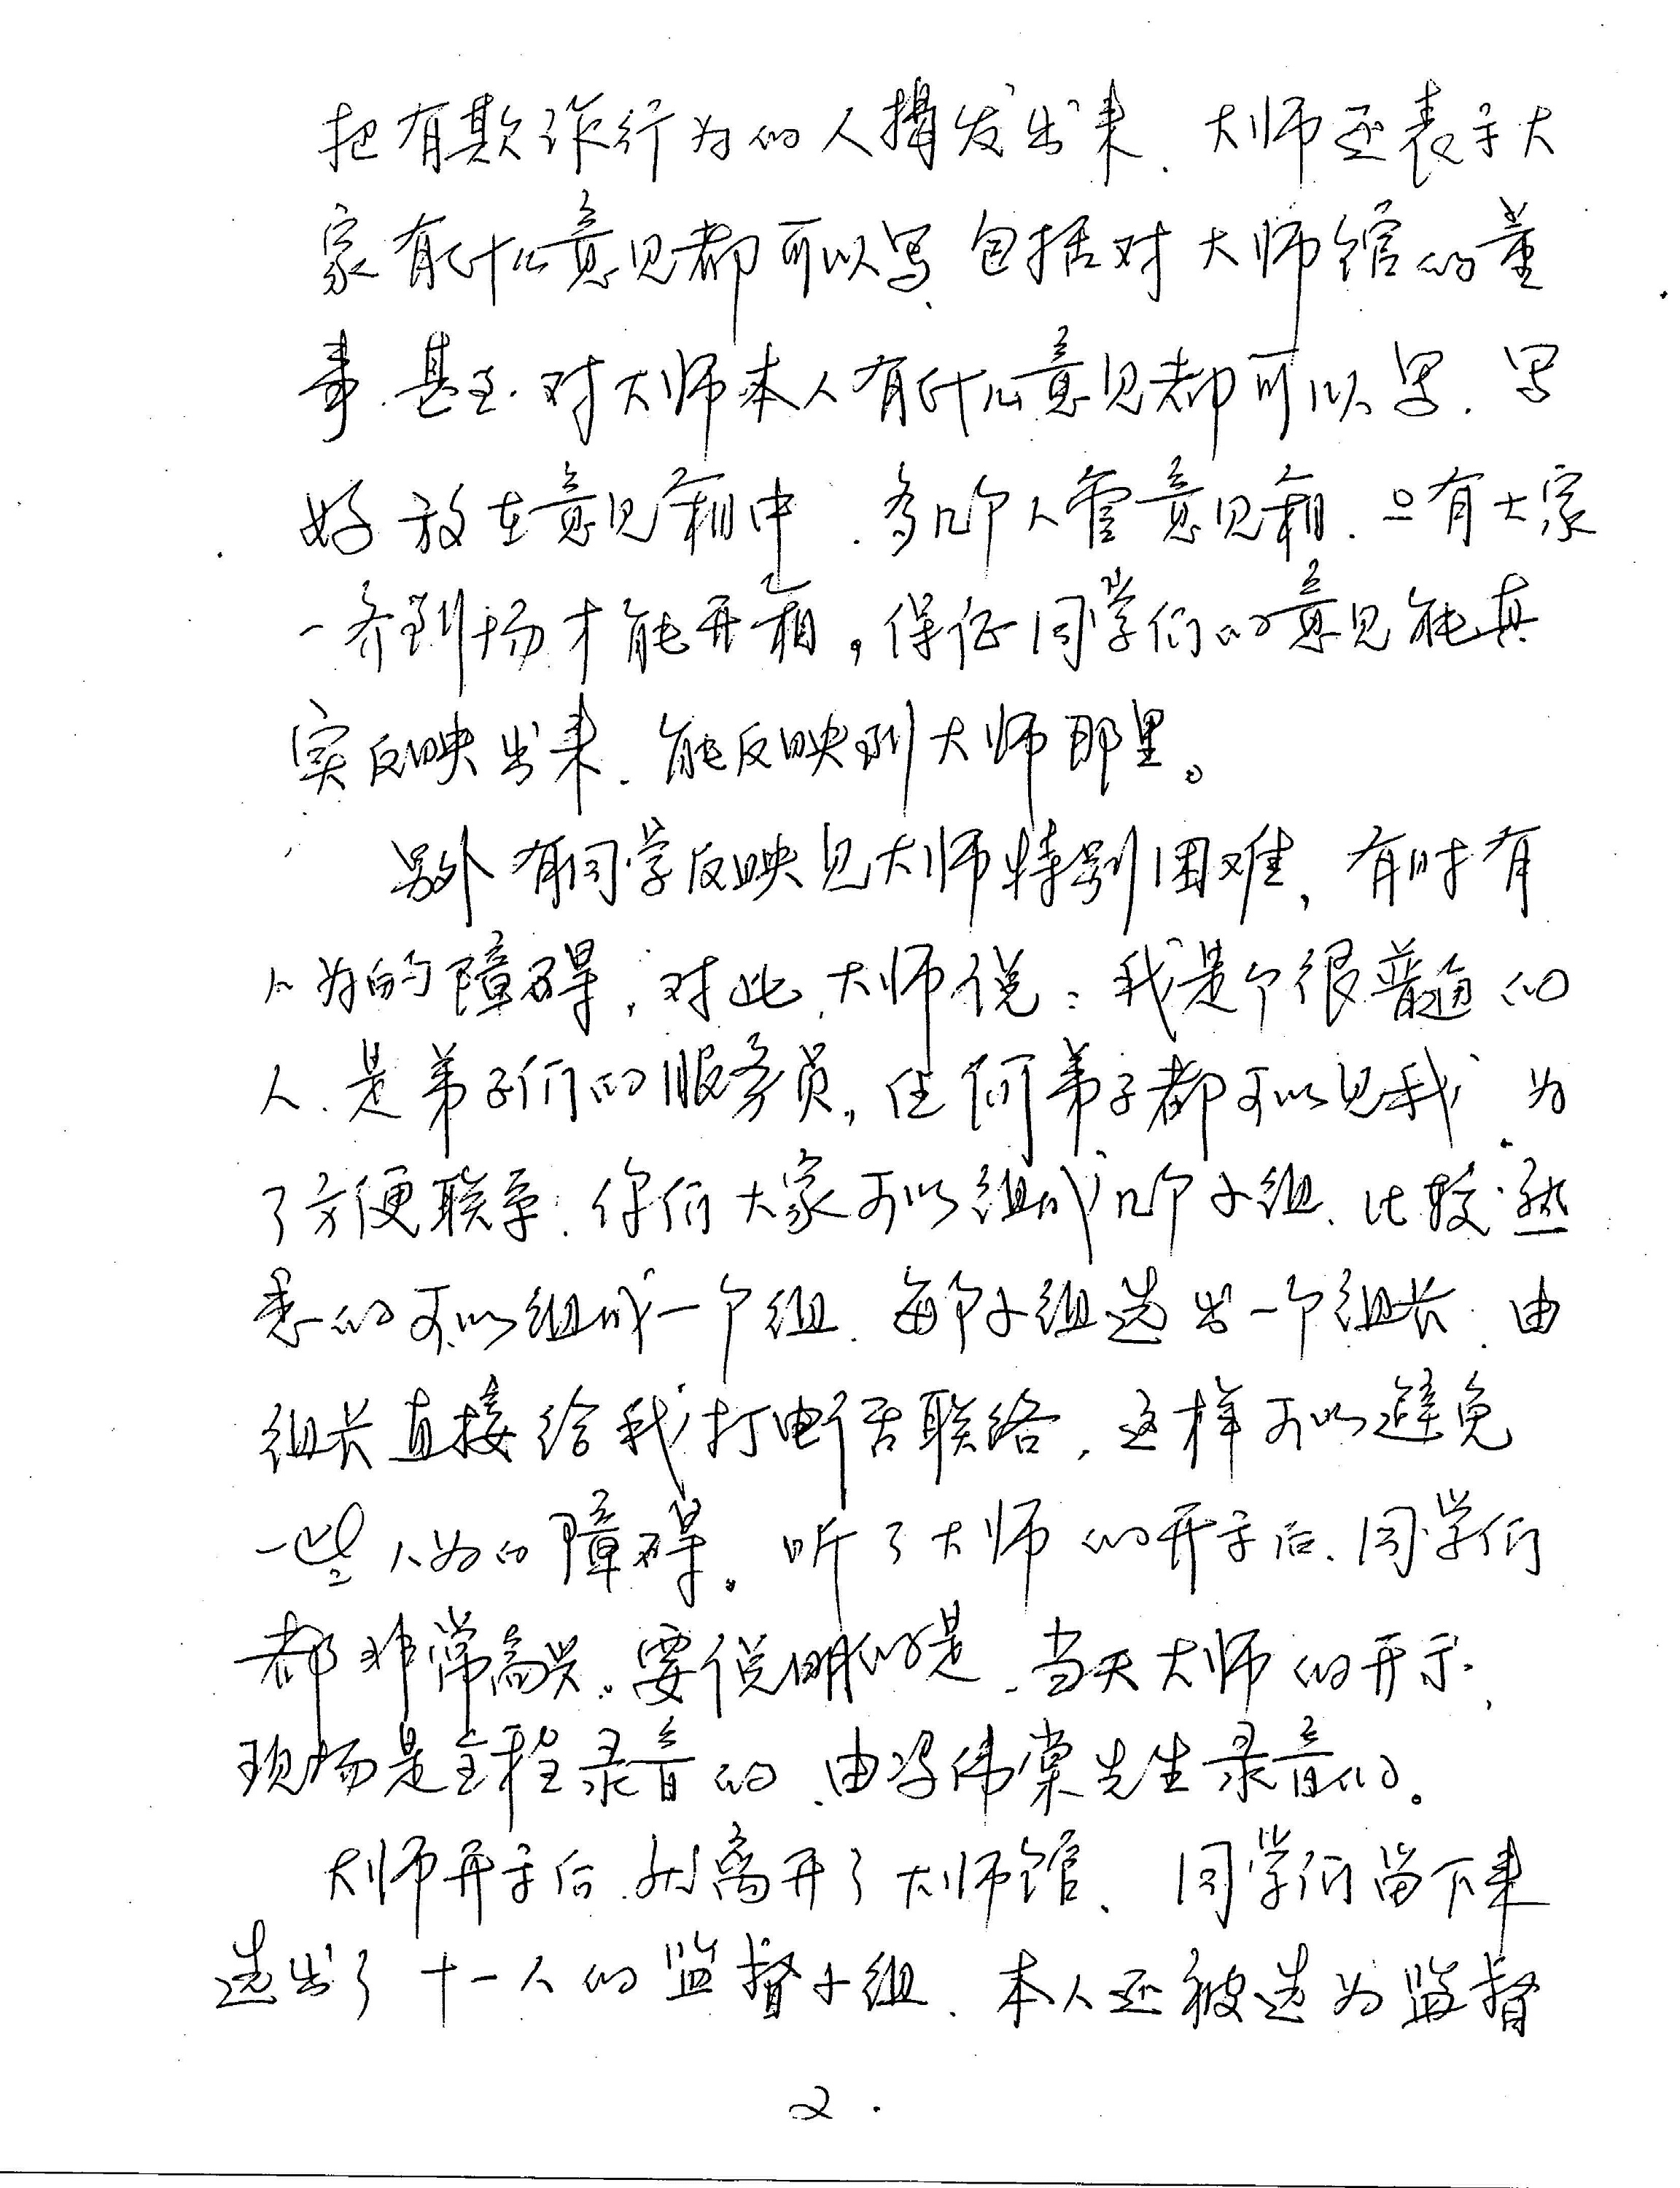 把有欺诈行为的人揭发出来、大师还表示大
家有什么意见都可以写、包括对大师馆的董
事、甚至对大师本人有什么意见都可以写、写
好放在意见箱中、多几个人管意见箱、只有大家
一齐到场才能开箱，保证同学们的意见能真
实反映出来、能反映到大师那里。
另外有同学反映见大师特别困难、有时有
人为的障碍，对此、大师说：我是个很普通的
人、是弟子们的服务员，任何弟子都可以见我、为
了方便联系、你们大家可以组成几个小组、比较熟
悉的可以组成一个组、每个小组选出一个组长、由
组长直接给我打电话联络，这样可以避免
一些人为的障碍。听了大师的开示后、同学们
都非常高兴。要说明的是、当天大师的开示、
现场是全程录音的、由冯伟棠先生录音的。
大师开示后、就离开了大师馆、同学们留下来
选出了十一人的监督小组、本人还被选为监督
2.